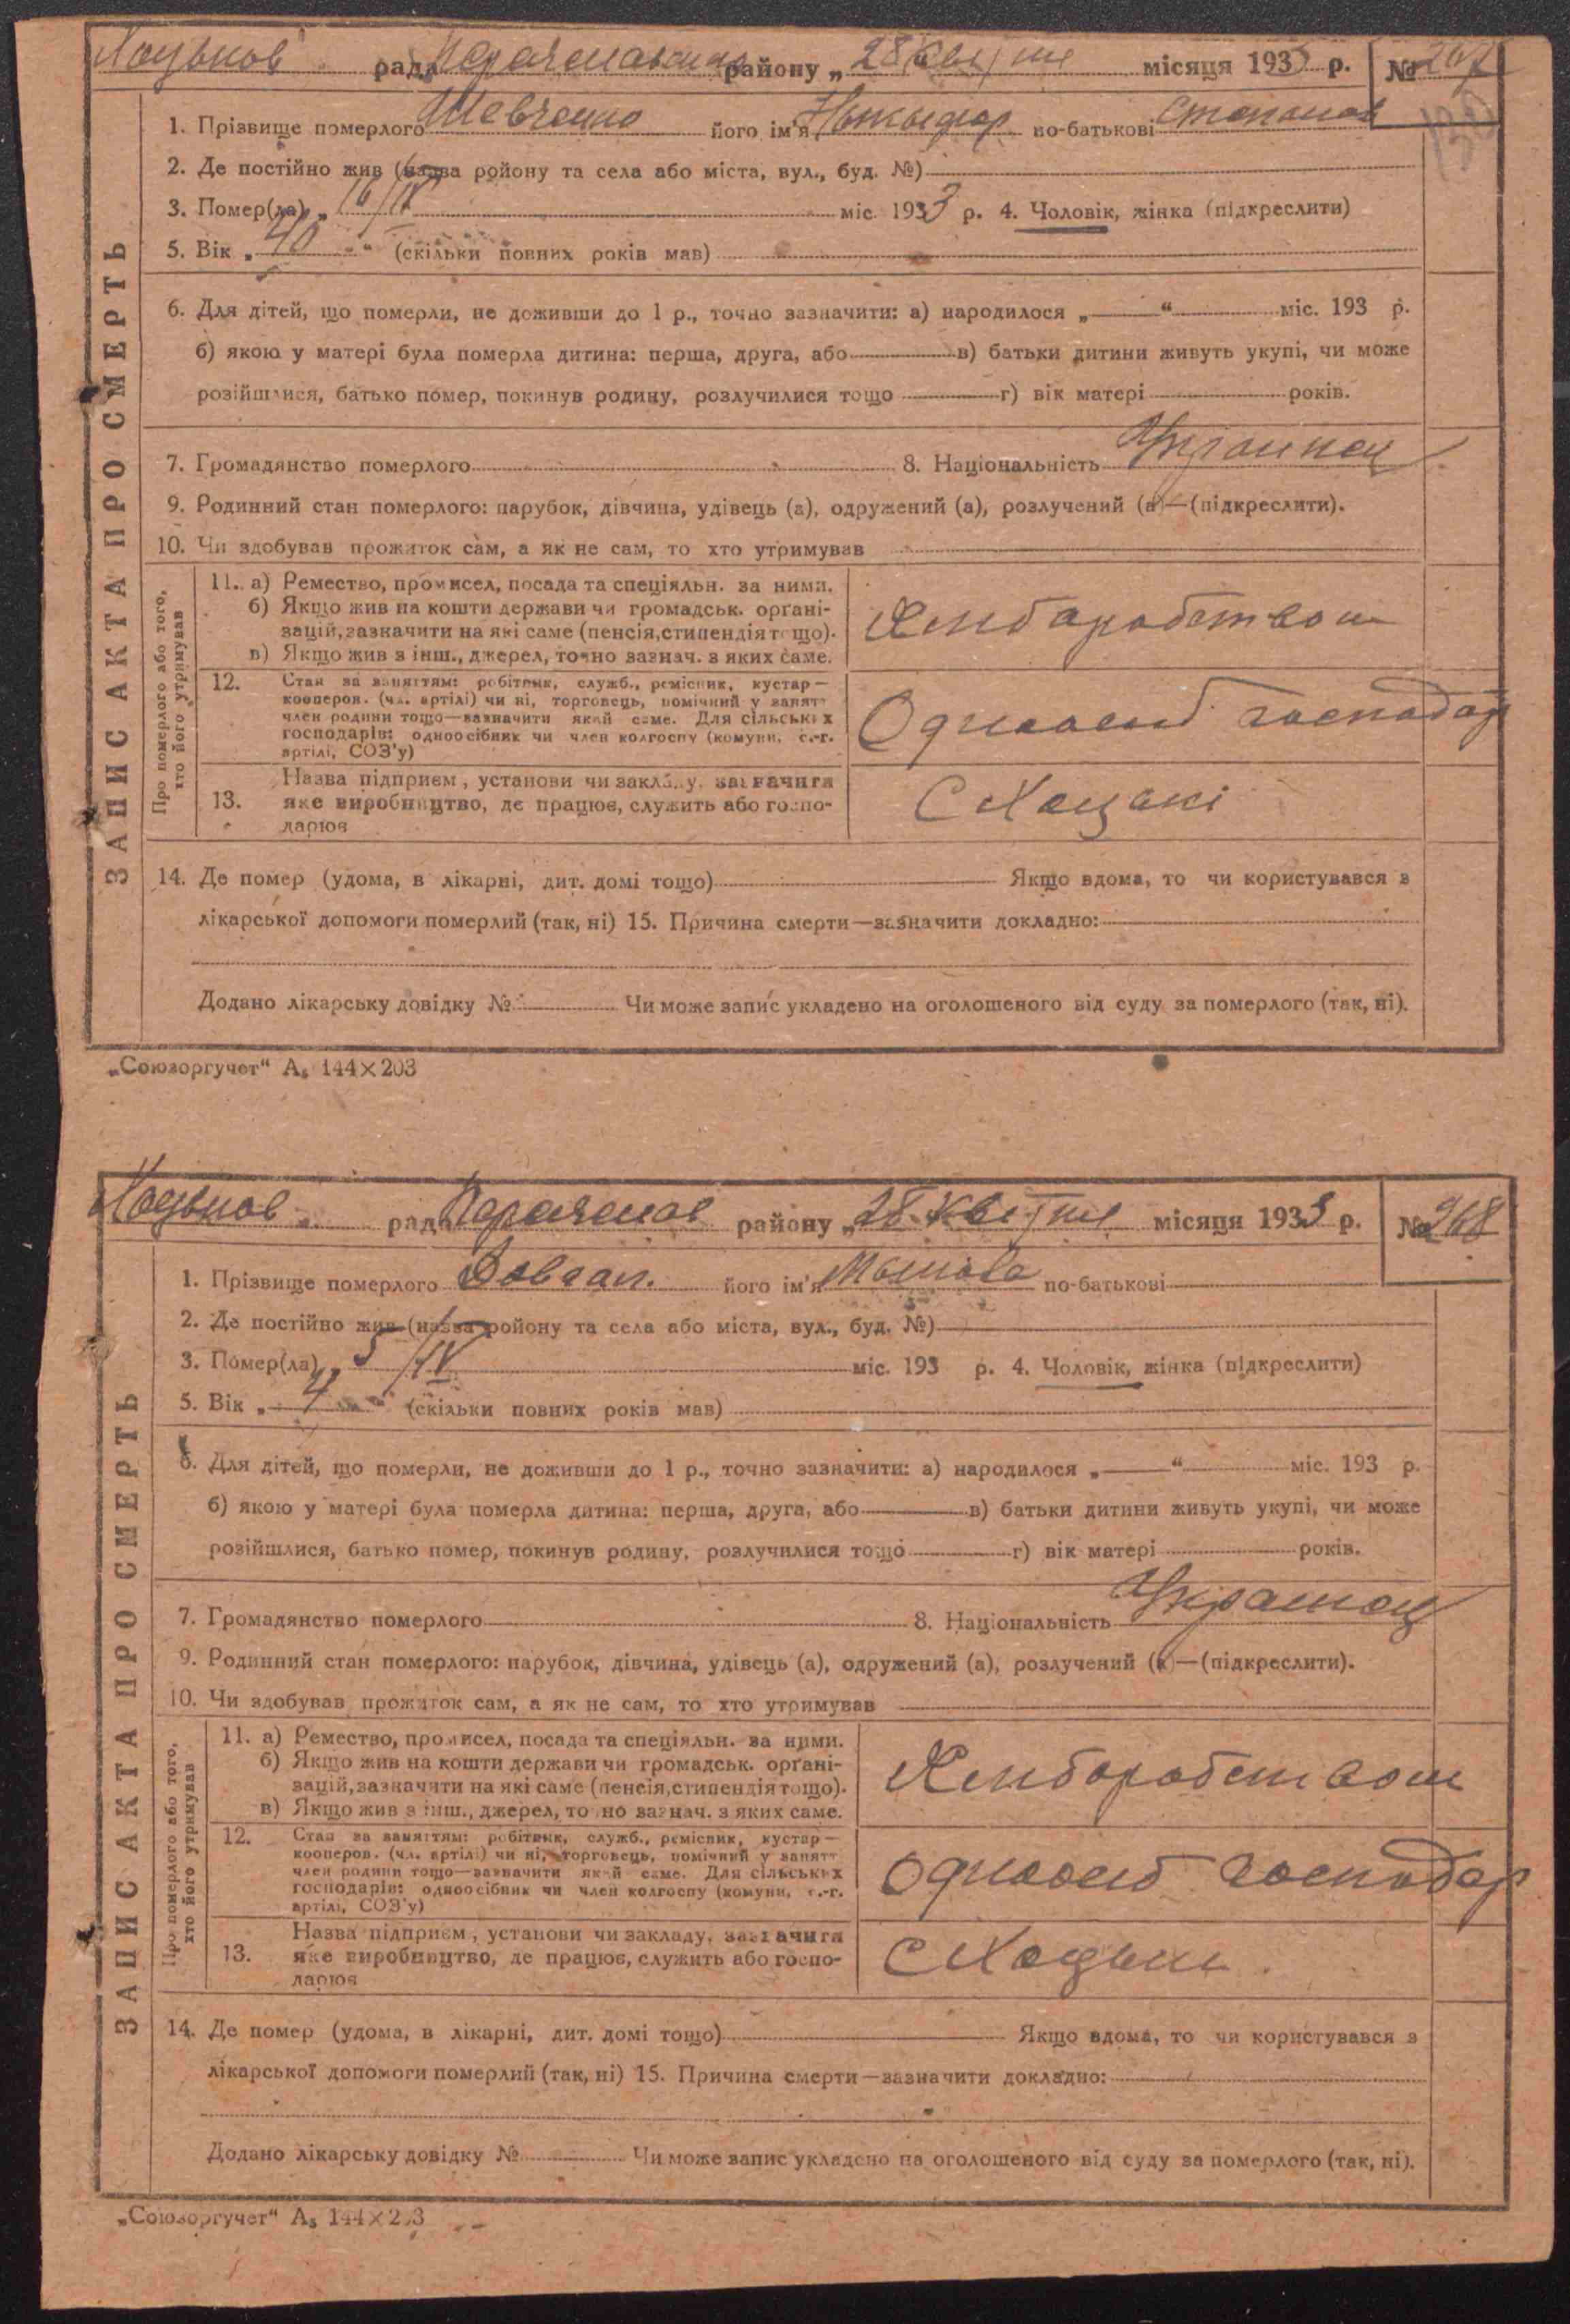 Хоцьков. рада Переяславськ району „28 квітня місяця 1933 р. № 267
130
1. Прізвище померлого Шевченко його ім'я по-батькові Степанов
2. Де постійно жив (назва ройону та села або міста, вул., буд. №)
3. Помер(ла) „ 16/IV міс. 1933 р. 4. Чоловік, жінка (підкреслити)
5. Вік „ 40 " (скільки повних років мав)
6. Для дітей, що померли, не доживши до 1 р., точно зазначити: а) народилося „ “ міс. 193 р.
б) якою у матері була померла дитина: перша, друга, або в) батьки дитини живуть укупі, чи може
розійшлися, батько помер, покинув родину, розлучилися тощо г) вік матері років.
7. Громадянство померлого 8. Національність Українец
9. Родинний стан померлого: парубок, дівчина, удівець (а), одружений (а), розлучений (а)—(підкреслити).
10. Чи здобував прожиток сам, а як не сам, то хто утримував
ЗАПИС АКТА ПРО СМЕРТЬ
Про померлого або того,
хто його утримував
11. а) Ремество, промисел, посада та спеціяльн. за ними.
б) Якщо жив на кошти держави чи громадськ. орґані-
зацій, зазначити на які саме (пенсія, стипендія тощо).
в) Якщо жив з інш., джерел, точно зазнач. з яких саме.
Хлиборобством
12. Стан за заняттям: робітник, служб., ремісник, кустар—
кооперов. (чл. артілі) чи ні, торговець, помічний у занятт
член родини тощо—зазначити який саме. Для сільських
господарів: одноосібник чи член колгоспу (комуни, с.-г.
артілі, СОЗ'у)
Одноосиб господар
Назва підприєм, установи чи закладу, зазначити
13. яке виробництво, де працює, служить або госпо-
дарює
С Хоцькі
14. Де помер (удома, в лікарні, дит. домі тощо) Якщо вдома, то чи користувався з
лікарської допомоги померлий (так, ні) 15. Причина смерти—зазначити докладно:
Додано лікарську довідку № Чи може запис укладено на оголошеного від суду за померлого (так, ні).
„Союзоргучет“ А₅ 144×203
Хоцьков. рада Переяслав району „28 квітня місяця 1933 р. № 268
1. Прізвище померлого Довгал. його ім'я по-батькові
2. Де постійно жив (назва ройону та села або міста, вул., буд. №)
3. Помер(ла) „ 5/IV міс. 193 р. 4. Чоловік, жінка (підкреслити)
5. Вік „ 4 " (скільки повних років мав)
6. Для дітей, що померли, не доживши до 1 р., точно зазначити: а) народилося „ “ міс. 193 р.
б) якою у матері була померла дитина: перша, друга, або в) батьки дитини живуть укупі, чи може
розійшлися, батько помер, покинув родину, розлучилися тощо г) вік матері років.
7. Громадянство померлого 8. Національність Українец
9. Родинний стан померлого: парубок, дівчина, удівець (а), одружений (а), розлучений (а)—(підкреслити).
10. Чи здобував прожиток сам, а як не сам, то хто утримував
ЗАПИС АКТА ПРО СМЕРТЬ
Про померлого або того,
хто його утримував
11. а) Ремество, промисел, посада та спеціяльн. за ними.
б) Якщо жив на кошти держави чи громадськ. орґані-
зацій, зазначити на які саме (пенсія, стипендія тощо).
в) Якщо жив з інш., джерел, точно зазнач. з яких саме.
Хлиборобством
12. Стан за заняттям: робітник, служб., ремісник, кустар—
кооперов. (чл. артілі) чи ні, торговець, помічний у занятт
член родини тощо—зазначити який саме. Для сільських
господарів: одноосібник чи член колгоспу (комуни, с.-г.
артілі, СОЗ'у)
Одноосиб господар
Назва підприєм, установи чи закладу, зазначити
13. яке виробництво, де працює, служить або госпо-
дарює
С Хоцьки.
14. Де помер (удома, в лікарні, дит. домі тощо) Якщо вдома, то чи користувався з
лікарської допомоги померлий (так, ні) 15. Причина смерти—зазначити докладно:
Додано лікарську довідку № Чи може запис укладено на оголошеного від суду за померлого (так, ні).
„Союзоргучет“ А₅ 144×203